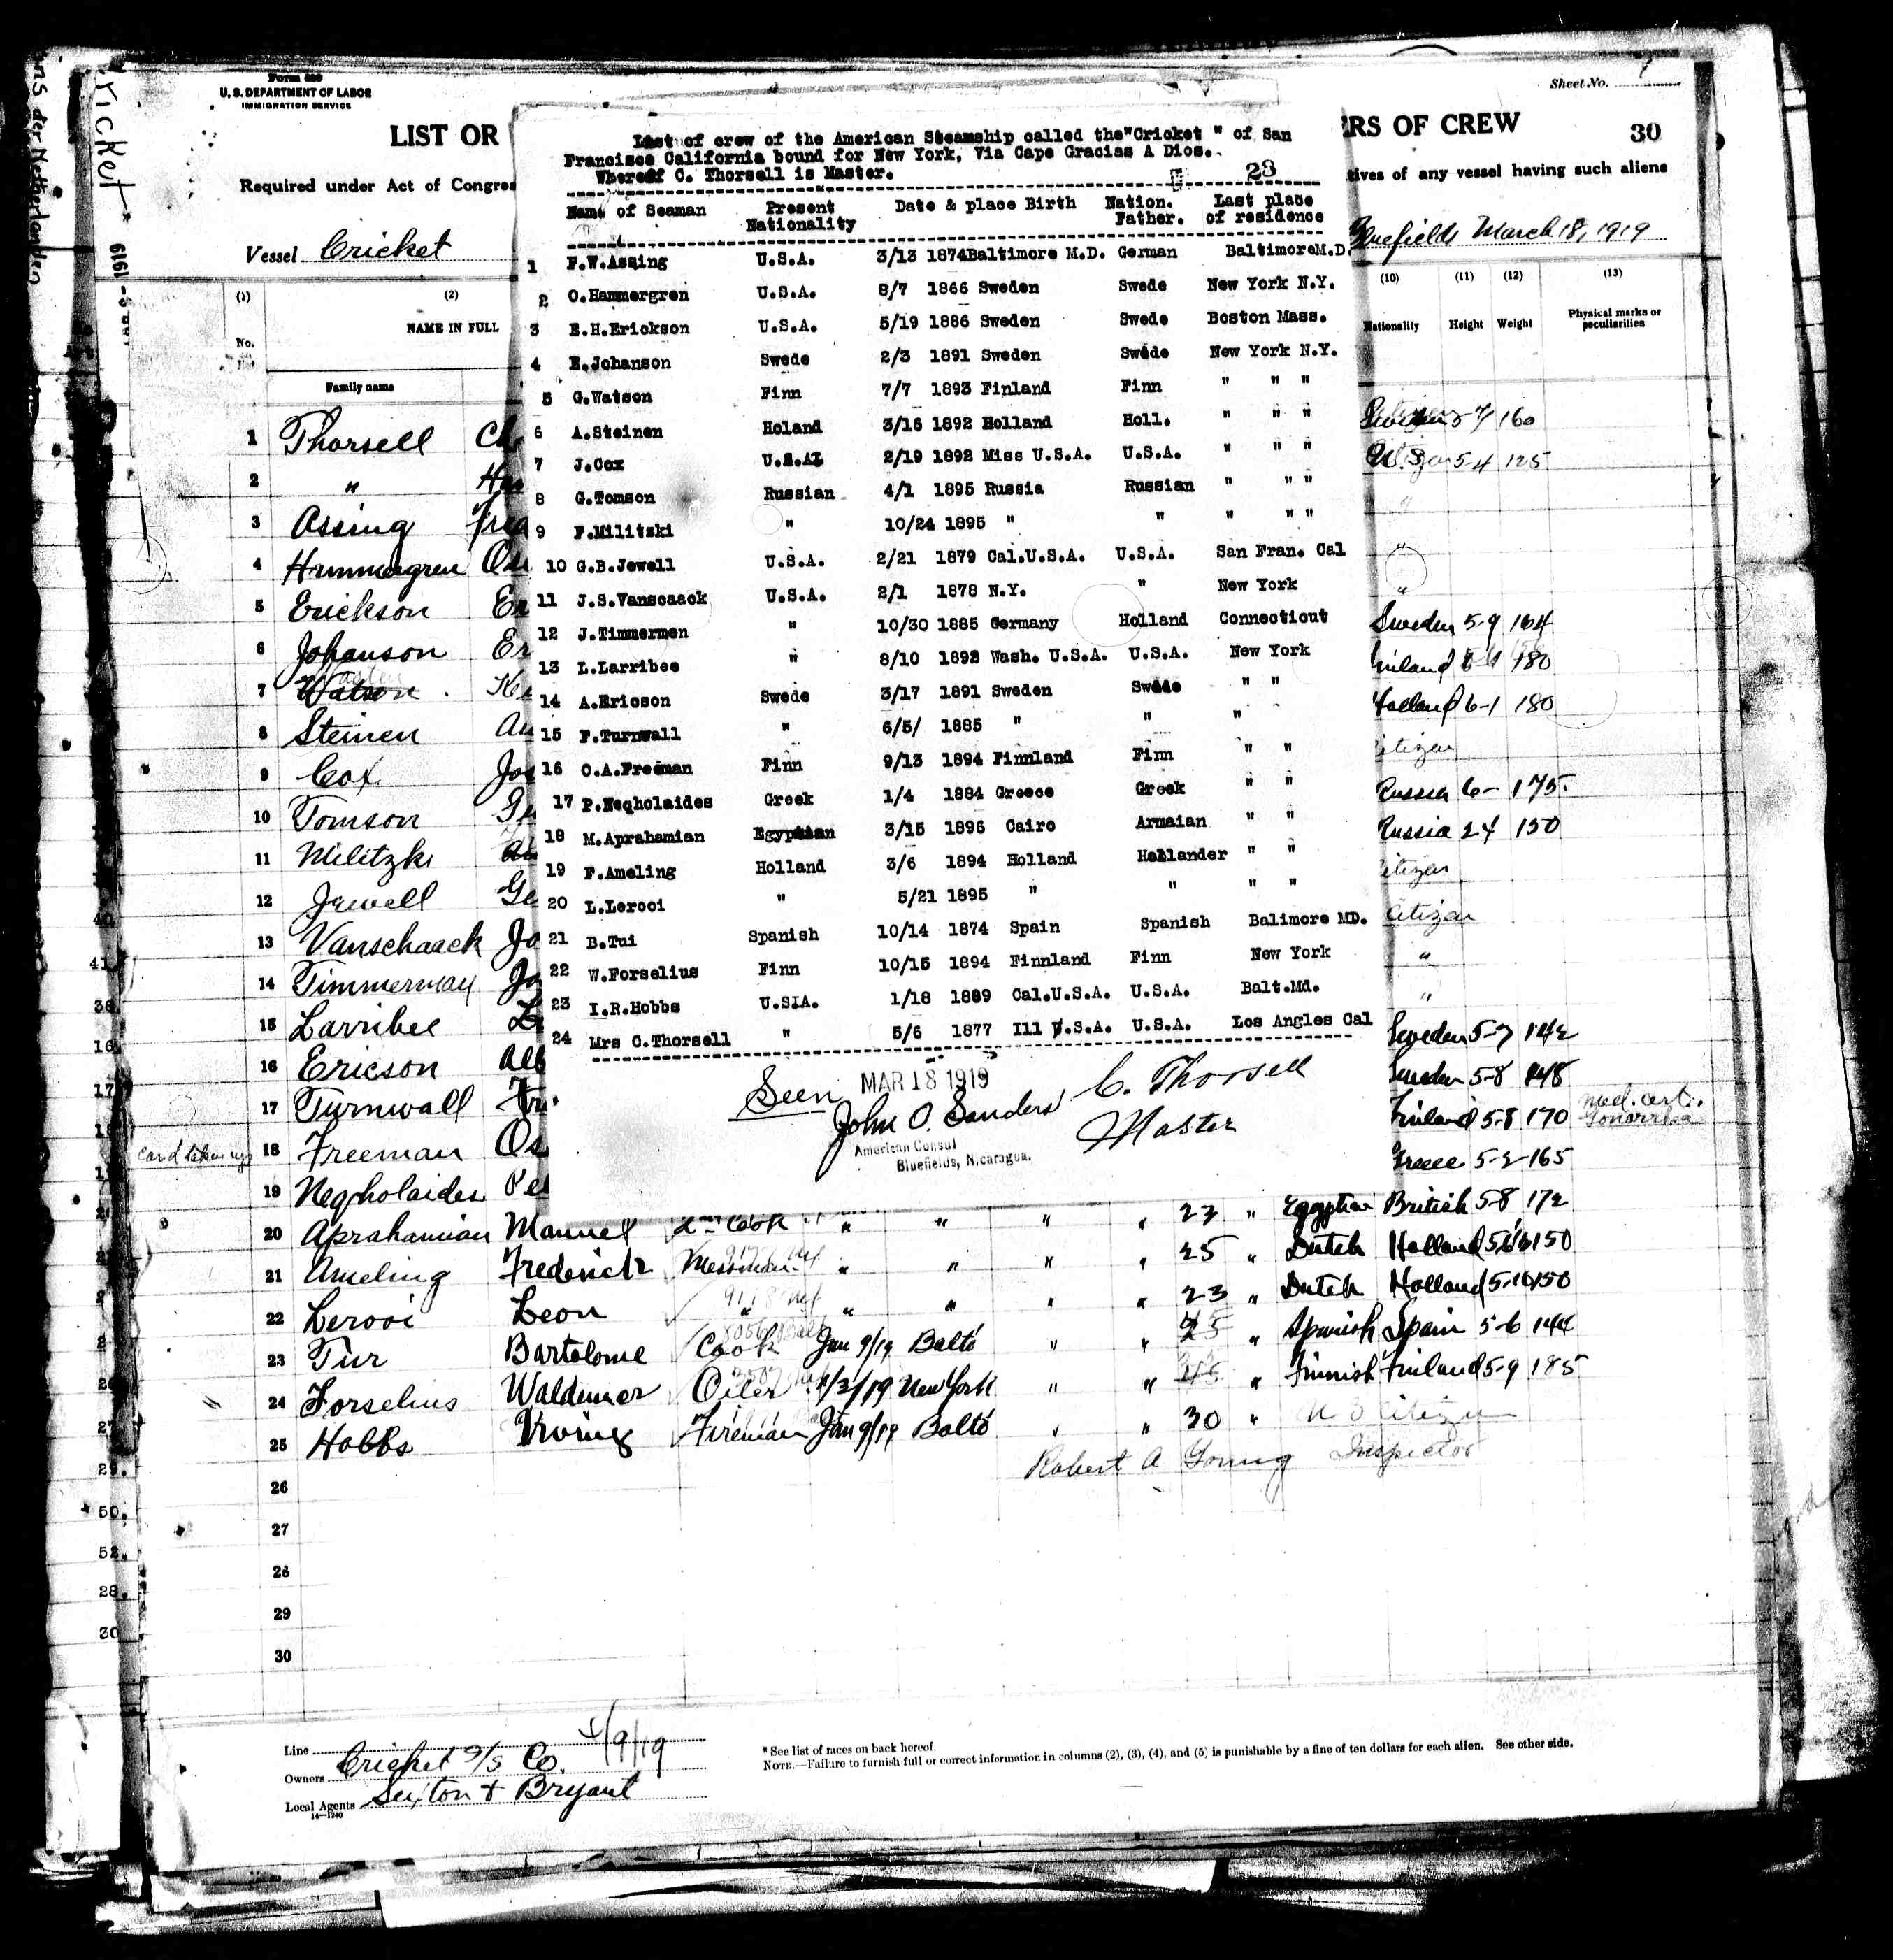 ns der Netherlanden
ricket
1919
Form 680
U. S. DEPARTMENT OF LABOR
IMMIGRATION SERVICE
Sheet No. 1
LIST OR
RS OF CREW
30
Required under Act of Congres
tives of any vessel having such aliens
Vessel Cricket
Bluefields March 18, 1919
(1) (2) (10) (11) (12) (13)
No. NAME IN FULL Nationality Height Weight Physical marks or peculiarities
Family name
List of crew of the American Steamship called the "Cricket " of San
Francisco California bound for New York, Via Cape Gracias A Dios.
Whereof C. Thorsell is Master.
23
Name of Seaman Present Nationality Date & place Birth Nation. Father. Last place of residence
1 F.W.Assing U.S.A. 3/13 1874 Baltimore M.D. German Baltimore M.D.
2 O.Hammergren U.S.A. 8/7 1866 Sweden Swede New York N.Y.
3 E.H.Erickson U.S.A. 5/19 1886 Sweden Swede Boston Mass.
4 E.Johanson Swede 2/3 1891 Sweden Swede New York N.Y.
5 G.Watson Finn 7/7 1893 Finland Finn " " "
6 A.Steinen Holand 3/16 1892 Holland Holl. " " "
7 J.Cox U.S.A. 2/19 1892 Miss U.S.A. U.S.A. " " "
8 G.Tomson Russian 4/1 1895 Russia Russian " " "
9 F.Militzki " 10/24 1895 " " " " "
10 G.B.Jewell U.S.A. 2/21 1879 Cal.U.S.A. U.S.A. San Fran. Cal
11 J.S.Vanscaack U.S.A. 2/1 1878 N.Y. " New York
12 J.Timmermen " 10/30 1885 Germany Holland Connecticut
13 L.Larribee " 8/10 1892 Wash. U.S.A. U.S.A. New York
14 A.Ericson Swede 3/17 1891 Sweden Swede " "
15 F.Turnwall " 6/5/ 1885 " " "
16 O.A.Freeman Finn 9/13 1894 Finnland Finn " "
17 P.Neqholaides Greek 1/4 1884 Greece Greek " "
18 M.Aprahamian Egyptian 3/15 1896 Cairo Armaian " "
19 F.Ameling Holland 3/6 1894 Holland Hollander " "
20 L.Lerooi " 5/21 1895 " " " "
21 B.Tui Spanish 10/14 1874 Spain Spanish Balimore MD.
22 W.Forselius Finn 10/15 1894 Finnland Finn New York
23 I.R.Hobbs U.SIA. 1/18 1889 Cal.U.S.A. U.S.A. Balt.Md.
24 Mrs C.Thorsell " 5/6 1877 Ill U.S.A. U.S.A. Los Angles Cal
Seen MAR 18 1919
C. Thorsell
John O. Sanders
Master
American Consul
Bluefields, Nicaragua.
1 Thorsell Ch 5-7 160
2 " Ha 5-4 125
3 Assing Fre "
4 Hammergren Os "
5 Erickson Er "
6 Johanson Er Sweden 5-9 164
7 Watson Finland 180
8 Steinen Au Holland 6-1 180
9 Cox Jos Citizen
10 Tomson Ge Russia 6- 175
11 Militzki Russia 150
12 Jewell Ge Citizen
13 Vanschaack Jo Citizen
14 Timmerman Jo "
15 Larribee "
16 Ericson Alb Sweden 5-7 142
17 Turnwall Fr Sweden 5-8 148
card taken up 18 Freeman Os Finland 5-8 170 med. cert. Gonorrhea
19 Neqholaides Pe Greece 5-2 165
20 Aprahamian Manuel 2nd Cook " " " " 23 " Egyptian British 5-8 172
21 Ameling Frederick Messman " " " " 25 " Dutch Holland 150
22 Lerooi Leon " " " " " 23 " Dutch Holland 5-10 150
23 Tur Bartolome Cook Jan 9/19 Balto " " 45 " Spanish Spain 5-6 144
24 Forselius Waldemar Oiler New York " " " Finnish Finland 5-9 185
25 Hobbs Irving Fireman Jan 9/19 Balto " " 30 " U S Citizen
Robert A. Young Inspector
26
27
28
29
30
Line
Owners Cricket S/S Co. 4/9/19
Local Agents Sexton & Bryant
14—1240
* See list of races on back hereof.
NOTE.—Failure to furnish full or correct information in columns (2), (3), (4), and (5) is punishable by a fine of ten dollars for each alien. See other side.